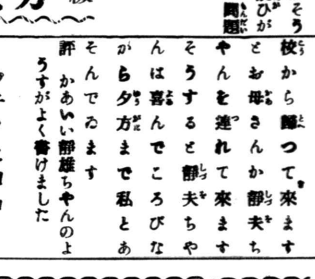 そう
ひが
問題
校から歸つて來ます
とお母さんか靜夫ち
やんを連れて來ます
そうすると靜夫ちや
んは喜んでころびな
がら夕方まで私とあ
そんでゐます
評 かあいい靜雄ちやんのよ
うすがよく書けました